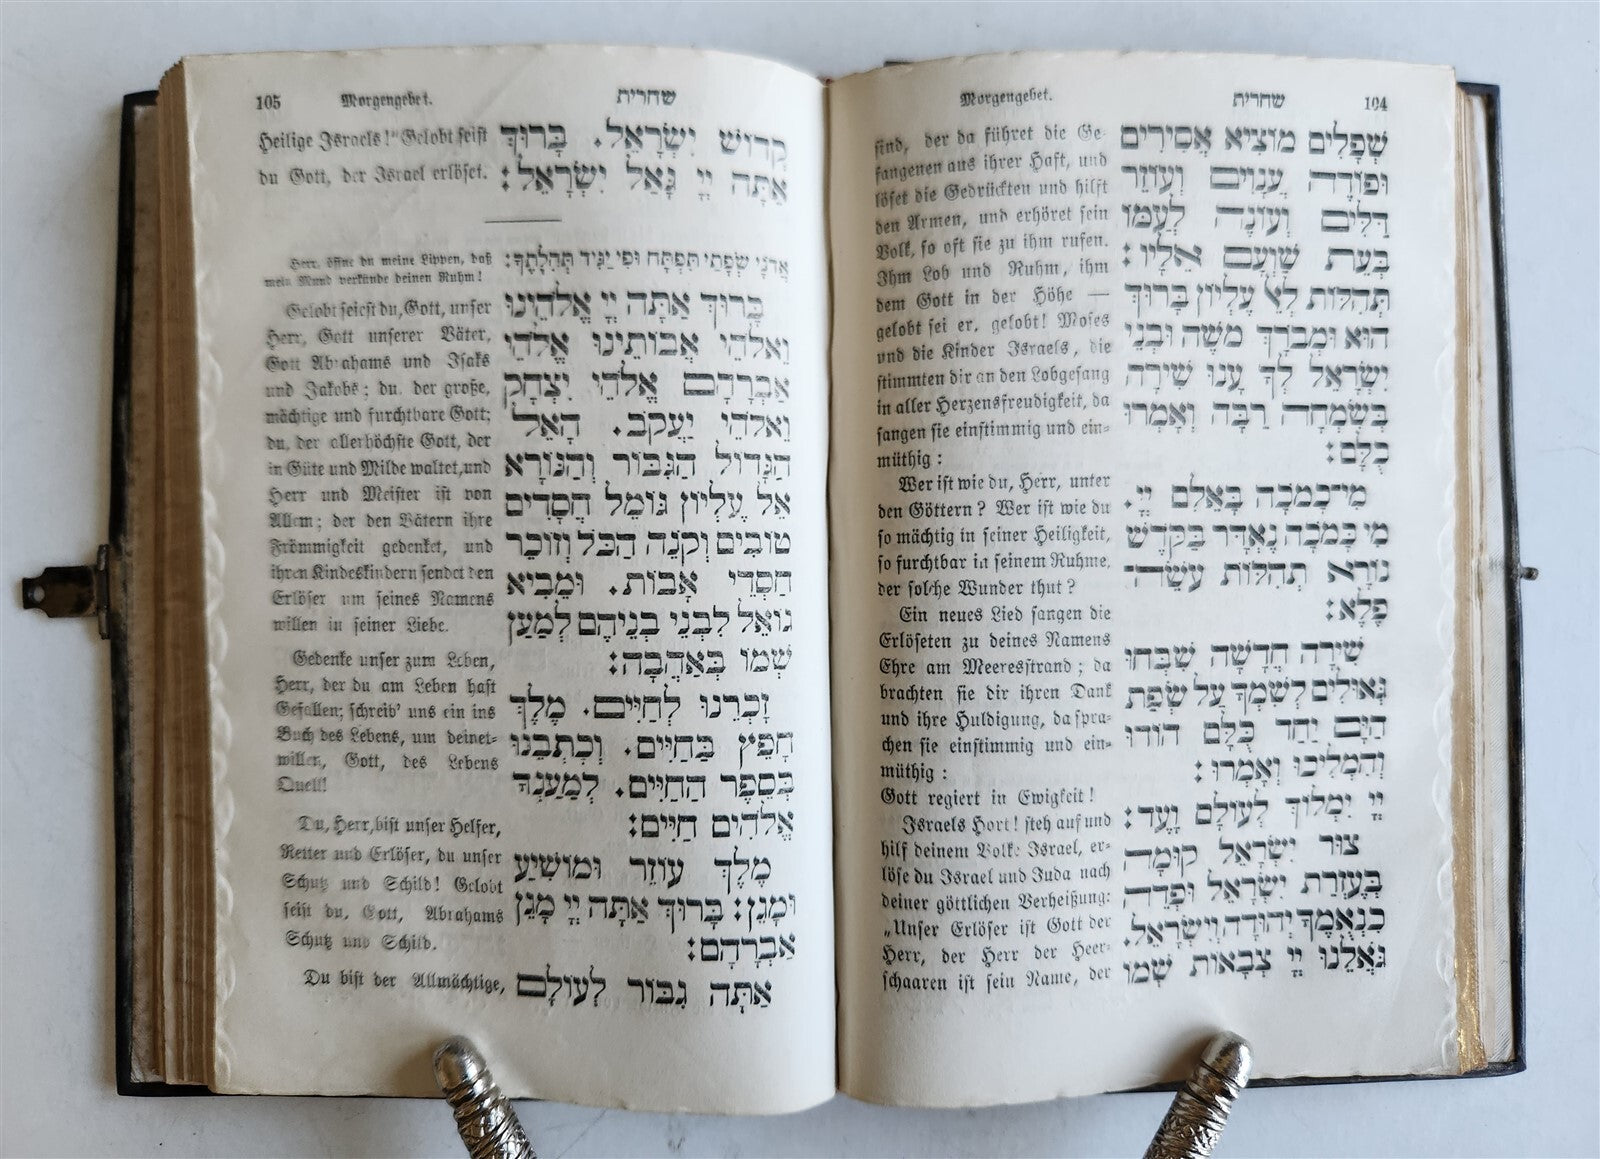 104 שחרית Morgengebet.
שְׁפָלִים מוֹצִיא אֲסִירִים
וּפוֹדֶה עֲנָוִים וְעוֹזֵר
דַּלִּים וְעוֹנֶה לְעַמּוֹ
בְּעֵת שַׁוְּעָם אֵלָיו:
תְּהִלּוֹת לְאֵל עֶלְיוֹן בָּרוּךְ
הוּא וּמְבֹרָךְ מֹשֶׁה וּבְנֵי
יִשְׂרָאֵל לְךָ עָנוּ שִׁירָה
בְּשִׂמְחָה רַבָּה וְאָמְרוּ
כֻלָּם:
מִי־כָמֹכָה בָּאֵלִם יְיָ.
מִי כָּמֹכָה נֶאְדָּר בַּקֹּדֶשׁ
נוֹרָא תְהִלּוֹת עֹשֵׂה־
פֶלֶא:
שִׁירָה חֲדָשָׁה שִׁבְּחוּ
גְאוּלִים לְשִׁמְךָ עַל שְׂפַת
הַיָּם יַחַד כֻּלָּם הוֹדוּ
וְהִמְלִיכוּ וְאָמְרוּ:
יְיָ יִמְלֹךְ לְעוֹלָם וָעֶד:
צוּר יִשְׂרָאֵל קוּמָה
בְּעֶזְרַת יִשְׂרָאֵל וּפְדֵה
כִנְאֻמֶךָ יְהוּדָה וְיִשְׂרָאֵל.
גֹּאֲלֵנוּ יְיָ צְבָאוֹת שְׁמוֹ
sind, der da führet die Ge-
fangenen aus ihrer Haft, und
löset die Gedrückten und hilft
den Armen, und erhöret sein
Volk, so oft sie zu ihm rufen.
Ihm Lob und Ruhm, ihm
dem Gott in der Höhe —
gelobt sei er, gelobt! Moses
und die Kinder Israels, die
stimmten dir an den Lobgesang
in aller Herzensfreudigkeit, da
sangen sie einstimmig und ein-
müthig:
Wer ist wie du, Herr, unter
den Göttern? Wer ist wie du
so mächtig in seiner Heiligkeit,
so furchtbar in seinem Ruhme,
der solche Wunder thut?
Ein neues Lied sangen die
Erlöseten zu deines Namens
Ehre am Meeresstrand; da
brachten sie dir ihren Dank
und ihre Huldigung, da spra-
chen sie einstimmig und ein-
müthig:
Gott regiert in Ewigkeit!
Israels Hort! steh auf und
hilf deinem Volke Israel, er-
löse du Israel und Juda nach
deiner göttlichen Verheißung:
„Unser Erlöser ist Gott der
Herr, der Herr der Heer-
schaaren ist sein Name, der
105 Morgengebet. שחרית
קְדוֹשׁ יִשְׂרָאֵל. בָּרוּךְ
אַתָּה יְיָ גָּאַל יִשְׂרָאֵל:
אֲדֹנָי שְׂפָתַי תִּפְתָּח וּפִי יַגִּיד תְּהִלָּתֶךָ:
בָּרוּךְ אַתָּה יְיָ אֱלֹהֵינוּ
וֵאלֹהֵי אֲבוֹתֵינוּ אֱלֹהֵי
אַבְרָהָם אֱלֹהֵי יִצְחָק
וֵאלֹהֵי יַעֲקֹב. הָאֵל
הַגָּדוֹל הַגִּבּוֹר וְהַנּוֹרָא
אֵל עֶלְיוֹן גּוֹמֵל חֲסָדִים
טוֹבִים וְקֹנֵה הַכֹּל וְזוֹכֵר
חַסְדֵי אָבוֹת. וּמֵבִיא
גוֹאֵל לִבְנֵי בְנֵיהֶם לְמַעַן
שְׁמוֹ בְּאַהֲבָה:
זָכְרֵנוּ לְחַיִּים. מֶלֶךְ
חָפֵץ בַּחַיִּים. וְכָתְבֵנוּ
בְּסֵפֶר הַחַיִּים. לְמַעַנְךָ
אֱלֹהִים חַיִּים:
מֶלֶךְ עוֹזֵר וּמוֹשִׁיעַ
וּמָגֵן: בָּרוּךְ אַתָּה יְיָ מָגֵן
אַבְרָהָם:
אַתָּה גִּבּוֹר לְעוֹלָם
Heilige Israels!“ Gelobt seist
du Gott, der Israel erlöset.
Herr, öffne du meine Lippen, daß
mein Mund verkünde deinen Ruhm!
Gelobt seiest du, Gott, unser
Herr, Gott unserer Väter,
Gott Abrahams und Isaks
und Jakobs; du, der große,
mächtige und furchtbare Gott;
du, der allerhöchste Gott, der
in Güte und Milde waltet, und
Herr und Meister ist von
Allem; der den Vätern ihre
Frömmigkeit gedenket, und
ihren Kindeskindern sendet den
Erlöser um seines Namens
willen in seiner Liebe.
Gedenke unser zum Leben,
Herr, der du am Leben hast
Gefallen; schreib' uns ein ins
Buch des Lebens, um deinet-
willen, Gott, des Lebens
Quell!
Du, Herr, bist unser Helfer,
Retter und Erlöser, du unser
Schutz und Schild! Gelobt
seist du, Gott, Abrahams
Schutz und Schild.
Du bist der Allmächtige,